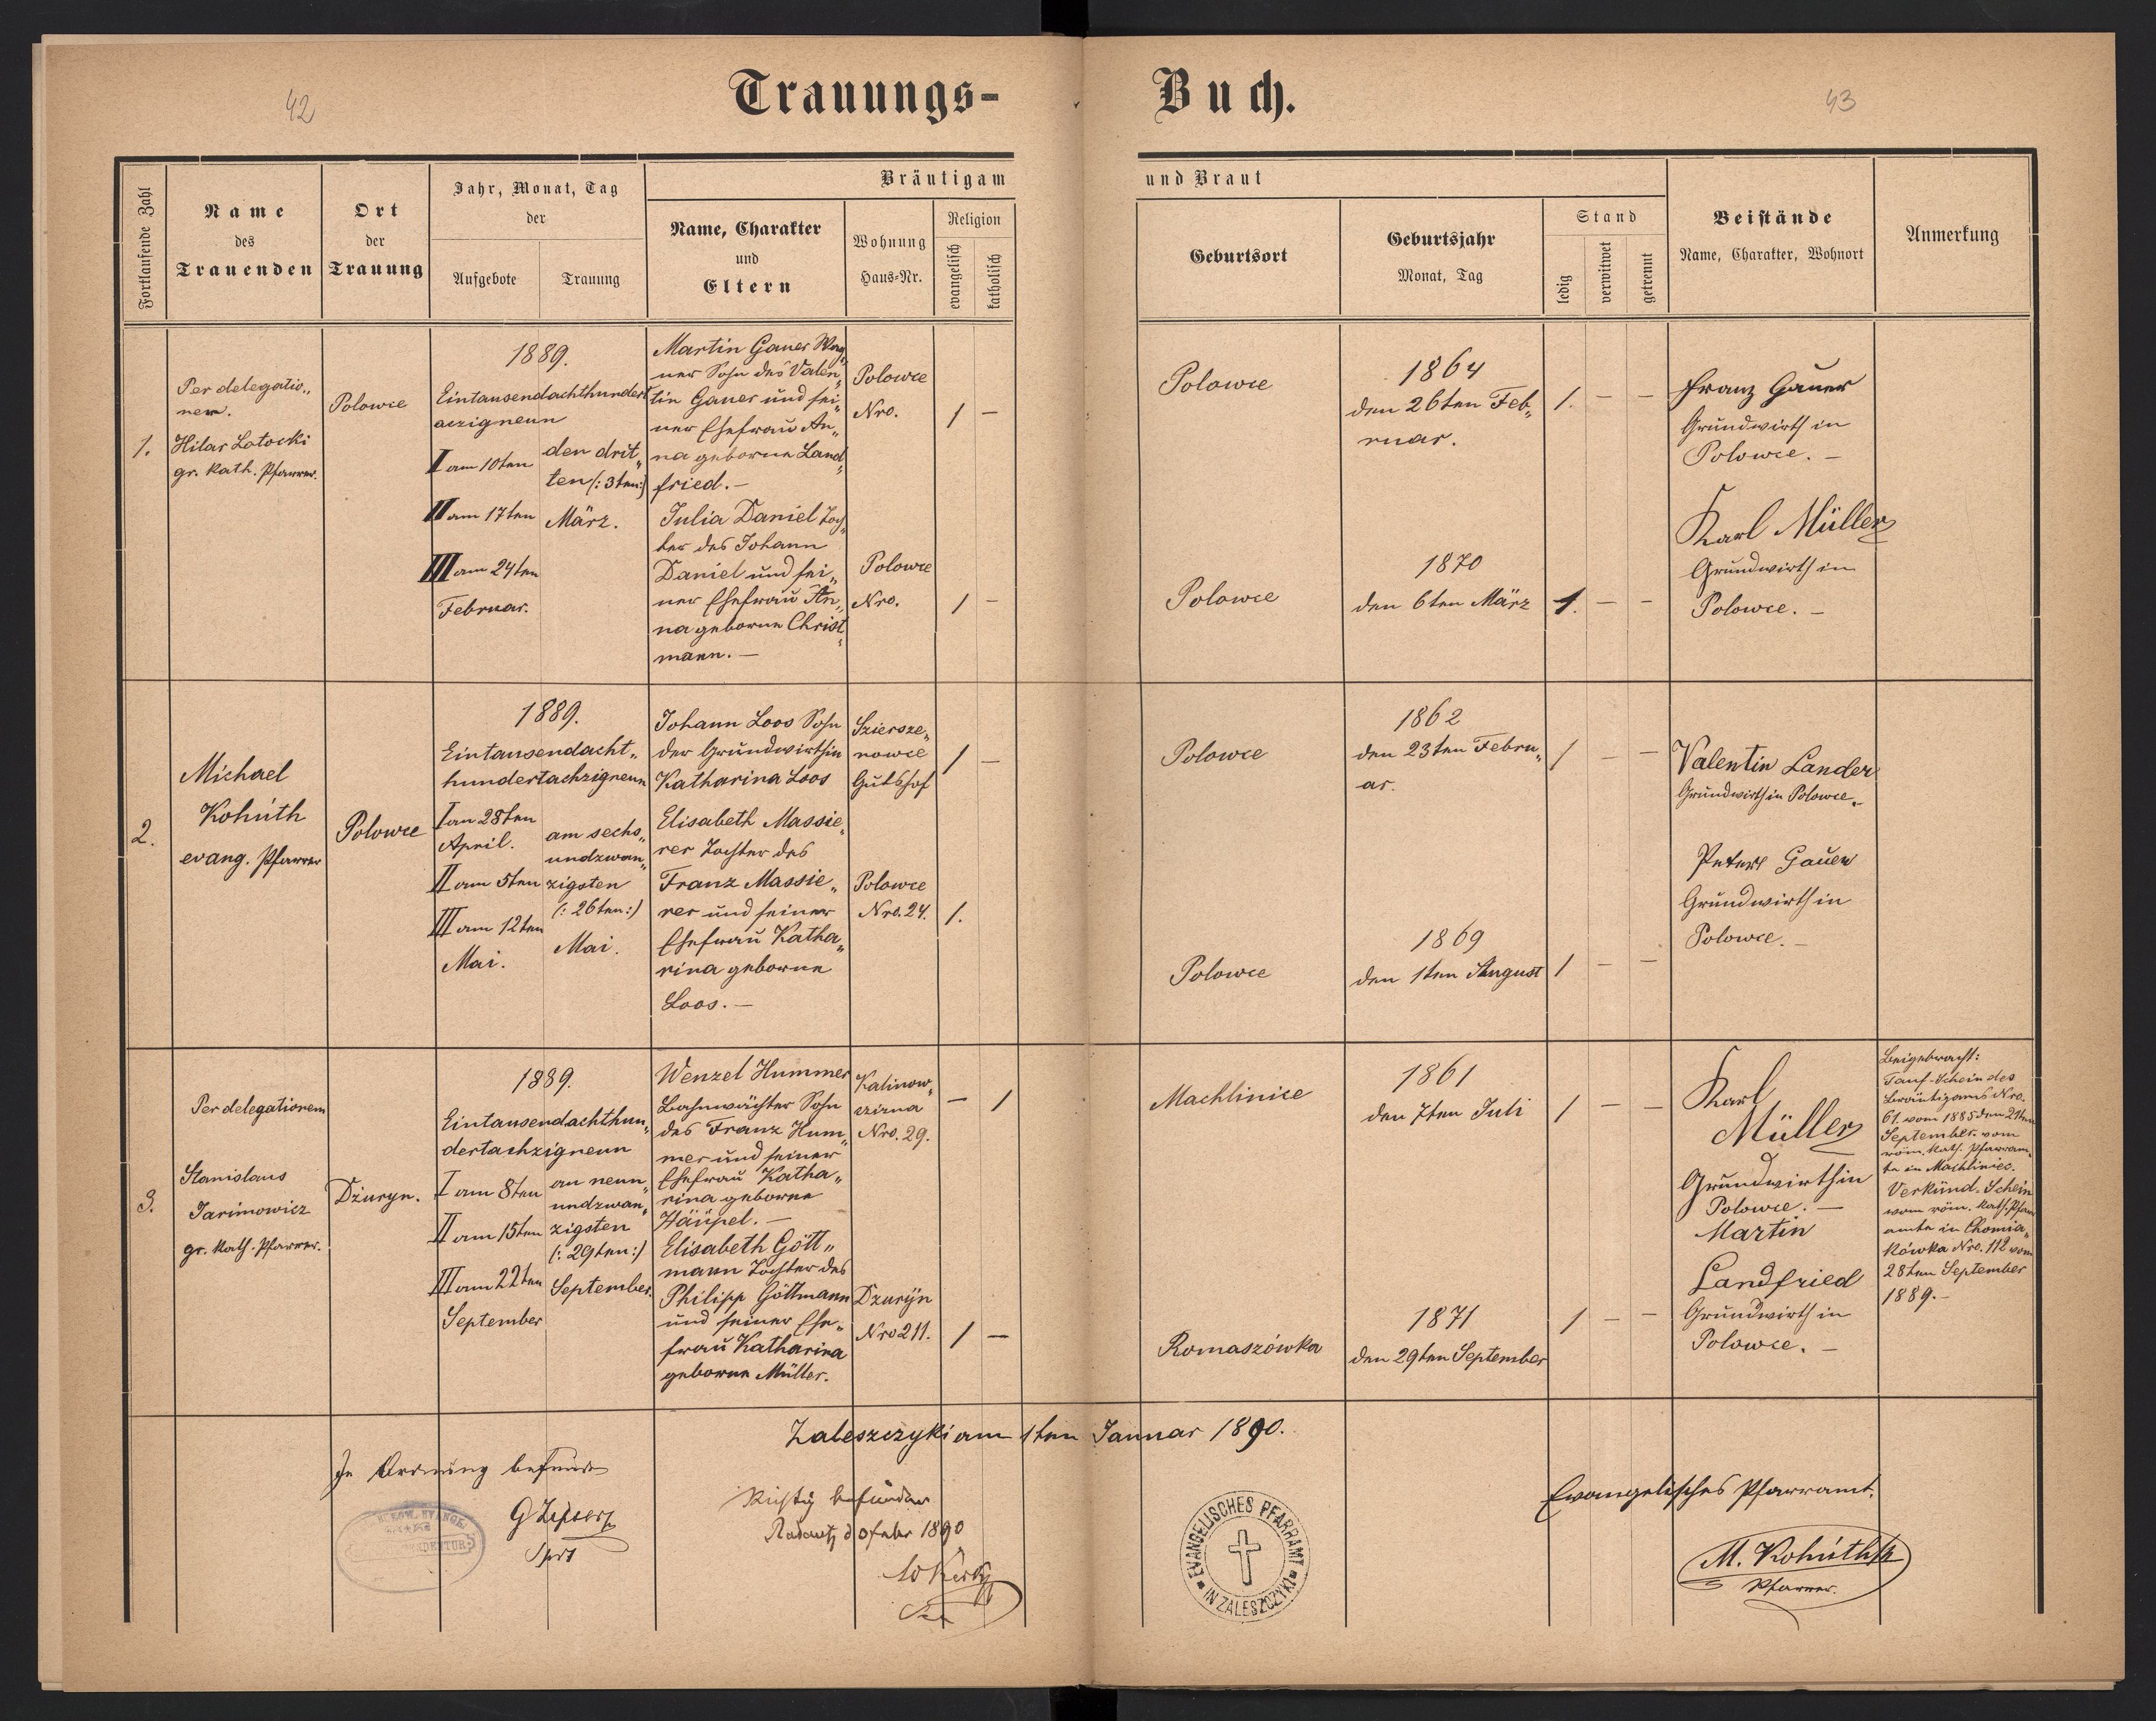 42
Trauungs-
Buch.
43
Fortlaufende Zahl
Name
des
Trauenden
Ort
der
Trauung
Jahr, Monat, Tag
der
Aufgebote
Trauung
Bräutigam
Name, Charakter
und
Eltern
Wohnung
Haus-Nr.
Religion
evangelisch
katholisch
und Braut
Geburtsort
Geburtsjahr
Monat, Tag
Stand
ledig
verwitwet
getrennt
Beistände
Name, Charakter, Wohnort
Anmerkung
1.
Per delegatio„
nem.
Hilar Lotocki
gr. kath. Pfarrer.
Polowce
1889.
Eintausendachthundert
aczigneun
I am 10ten
II am 17ten
III am 24ten
Februar.
den drit„
ten (: 3ten:)
März.
Martin Gauer Wag„
ner Sohn des Valen„
tin Gauer und sei„
ner Ehefrau An„
na geborne Land„
fried. —
Polowce
Nro.
1 —
Julia Daniel Toch„
ter des Johann
Daniel und sei„
ner Ehefrau An„
na geborne Christ„
mann. —
Polowce
Nro.
1 —
Polowce
1864
den 26ten Feb„
ruar.
1. — —
Polowce
1870
den 6ten März
1. — —
Franz Gauer
Grundwirth in
Polowce. —
Karl Müller
Grundwirth in
Polowce. —
2.
Michael
Kohúth
evang. Pfarrer
Polowce
1889.
Eintausendacht„
hundertachzigneun
I am 28ten
April.
II am 5ten
III am 12ten
Mai.
am sechs„
undzwan„
zigsten
(: 26ten:)
Mai.
Johann Loos Sohn
der Grundwirthin
Katharina Loos
Szierszе„
nowce
Gutshof
1 —
Elisabeth Massie„
rer Tochter des
Franz Massie„
rer und seiner
Ehefrau Katha„
rina geborne
Loos. —
Polowce
Nro. 24.
1.
Polowce
1862
den 23ten Febru„
ar.
1 —
Polowce
1869
den 1ten August
1 — —
Valentin Lander
Grundwirth in Polowce„
Peter Gauer
Grundwirth in
Polowce. —
3.
Per delegationem
Stanislaus
Jarimowicz
gr. kath. Pfarrer.
Dżuryn.
1889.
Eintausendachthun„
dertachzigneun
I am 8ten
II am 15ten
III am 22ten
September
an neun„
undzwan„
zigsten
(: 29ten:)
September.
Wenzel Hummer
Bahnwächter Sohn
des Franz Hum„
mer und seiner
Ehefrau Katha„
rina geborne
Häupel. —
Kalinow„
czizna
Nro. 29.
— 1
Elisabeth Gött„
mann Tochter des
Philipp Göttmann
und seiner Ehe„
frau Katharina
geborne Müller.
Dzurÿn
Nro 211.
1 —
Machlinice
1861
den 7ten Juli
1 — —
Romaszówka
1871
den 29ten September
1 — —
Karl
Müller
Grundwirth in
Polowce. —
Martin
Landfried
Grundwirth in
Polowce. —
Beigebracht:
Tauf-Schein des
Bräutigams Nro.
61. vom 1885 den 21ten
September. vom
röm. kath. Pfarram„
te in Machliniec.
Verkünd. Schein
vom röm. kath. Pfarr
amte in Chomia„
kówka Nro. 112 vom
28ten September
1889. —
Zaleszczyki am 1ten Januar 1890.
In Ordnung befunden
G Zipser
Richtig befunden
Radautz 1890
EVANGELISCHES PFARRAMT
IN ZALESZCZYKI
Evangelisches Pfarramt.
M. Kohúth
Pfarrer.